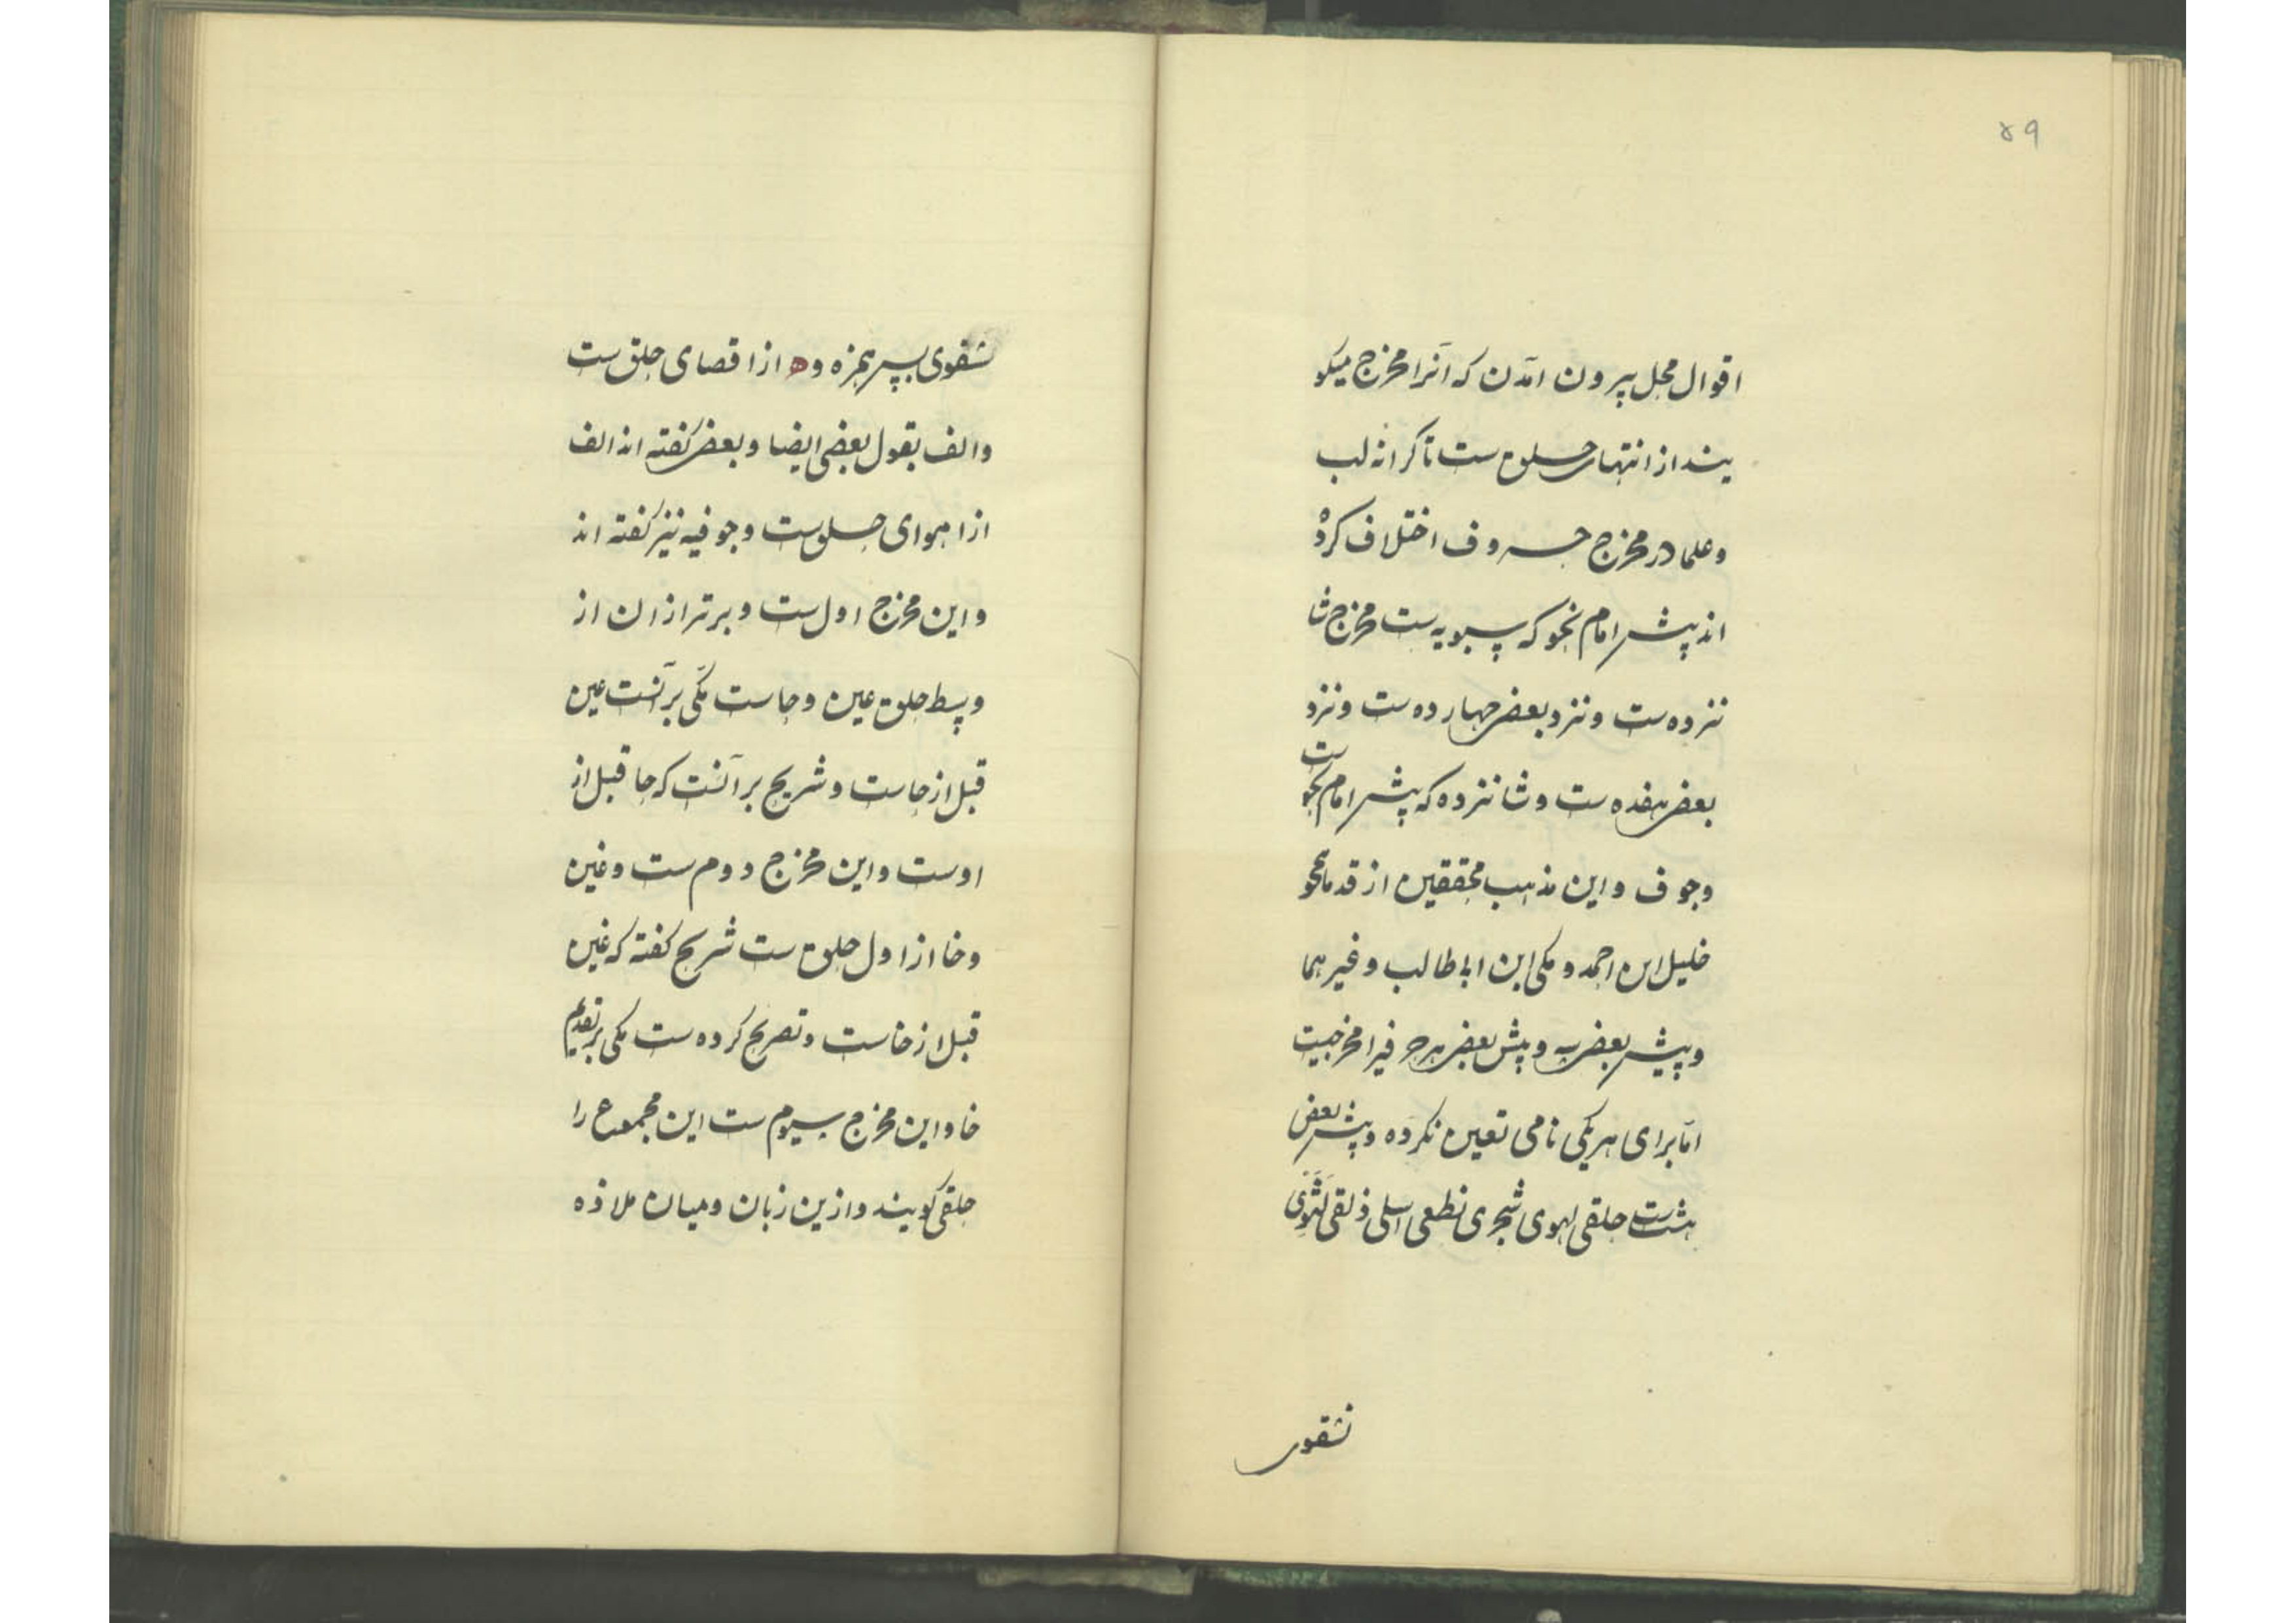 ۴۹
اقوال محل بیرون امدن که آنرا مخرج میکو
یند از انتهای حلق ست تا کرانه لب
و علما در مخرج حروف اختلاف کرده
اند پیش امام نحو که سیبویه ست مخرج شا
نزده ست و نزد بعضی چهارده ست و نزد
بعضی هفده ست و شانزده که پیش امام نحو ست
وجوف و این مذهب محققین از قدمای نحو
خلیل ابن احمد و مکی ابن ابا طالب و غیرهما
و پیش بعضی و پیش بعضی هر حرفیرا مخرجیست
اما برای هر یکی نامی تعین نکرده و پیش بعضی
هشت ست حلقی لهوی شجری نطعی اسلی ذلقی لثوی
شقوی
شقوی پس همزه و ه از اقصای حلق ست
و الف بقول بعضی ایضا و بعضی کفته اند الف
از اهوای حلق ست و جوفیه نیز کفته اند
و این مخرج اول ست و برتر از ان از
وسط حلق عین و حا ست مکی بر آنست عین
قبل از حاست و شریح بر آنست که حا قبل از
اوست و این مخرج دوم ست و غین
و خا از اول حلق ست شریح کفته که غین
قبل از خاست و تصریح کرده ست مکی بر تقدیم
خا و این مخرج سیوم ست این مجموع را
حلقی کویند و ازین زبان و میان ملاذه